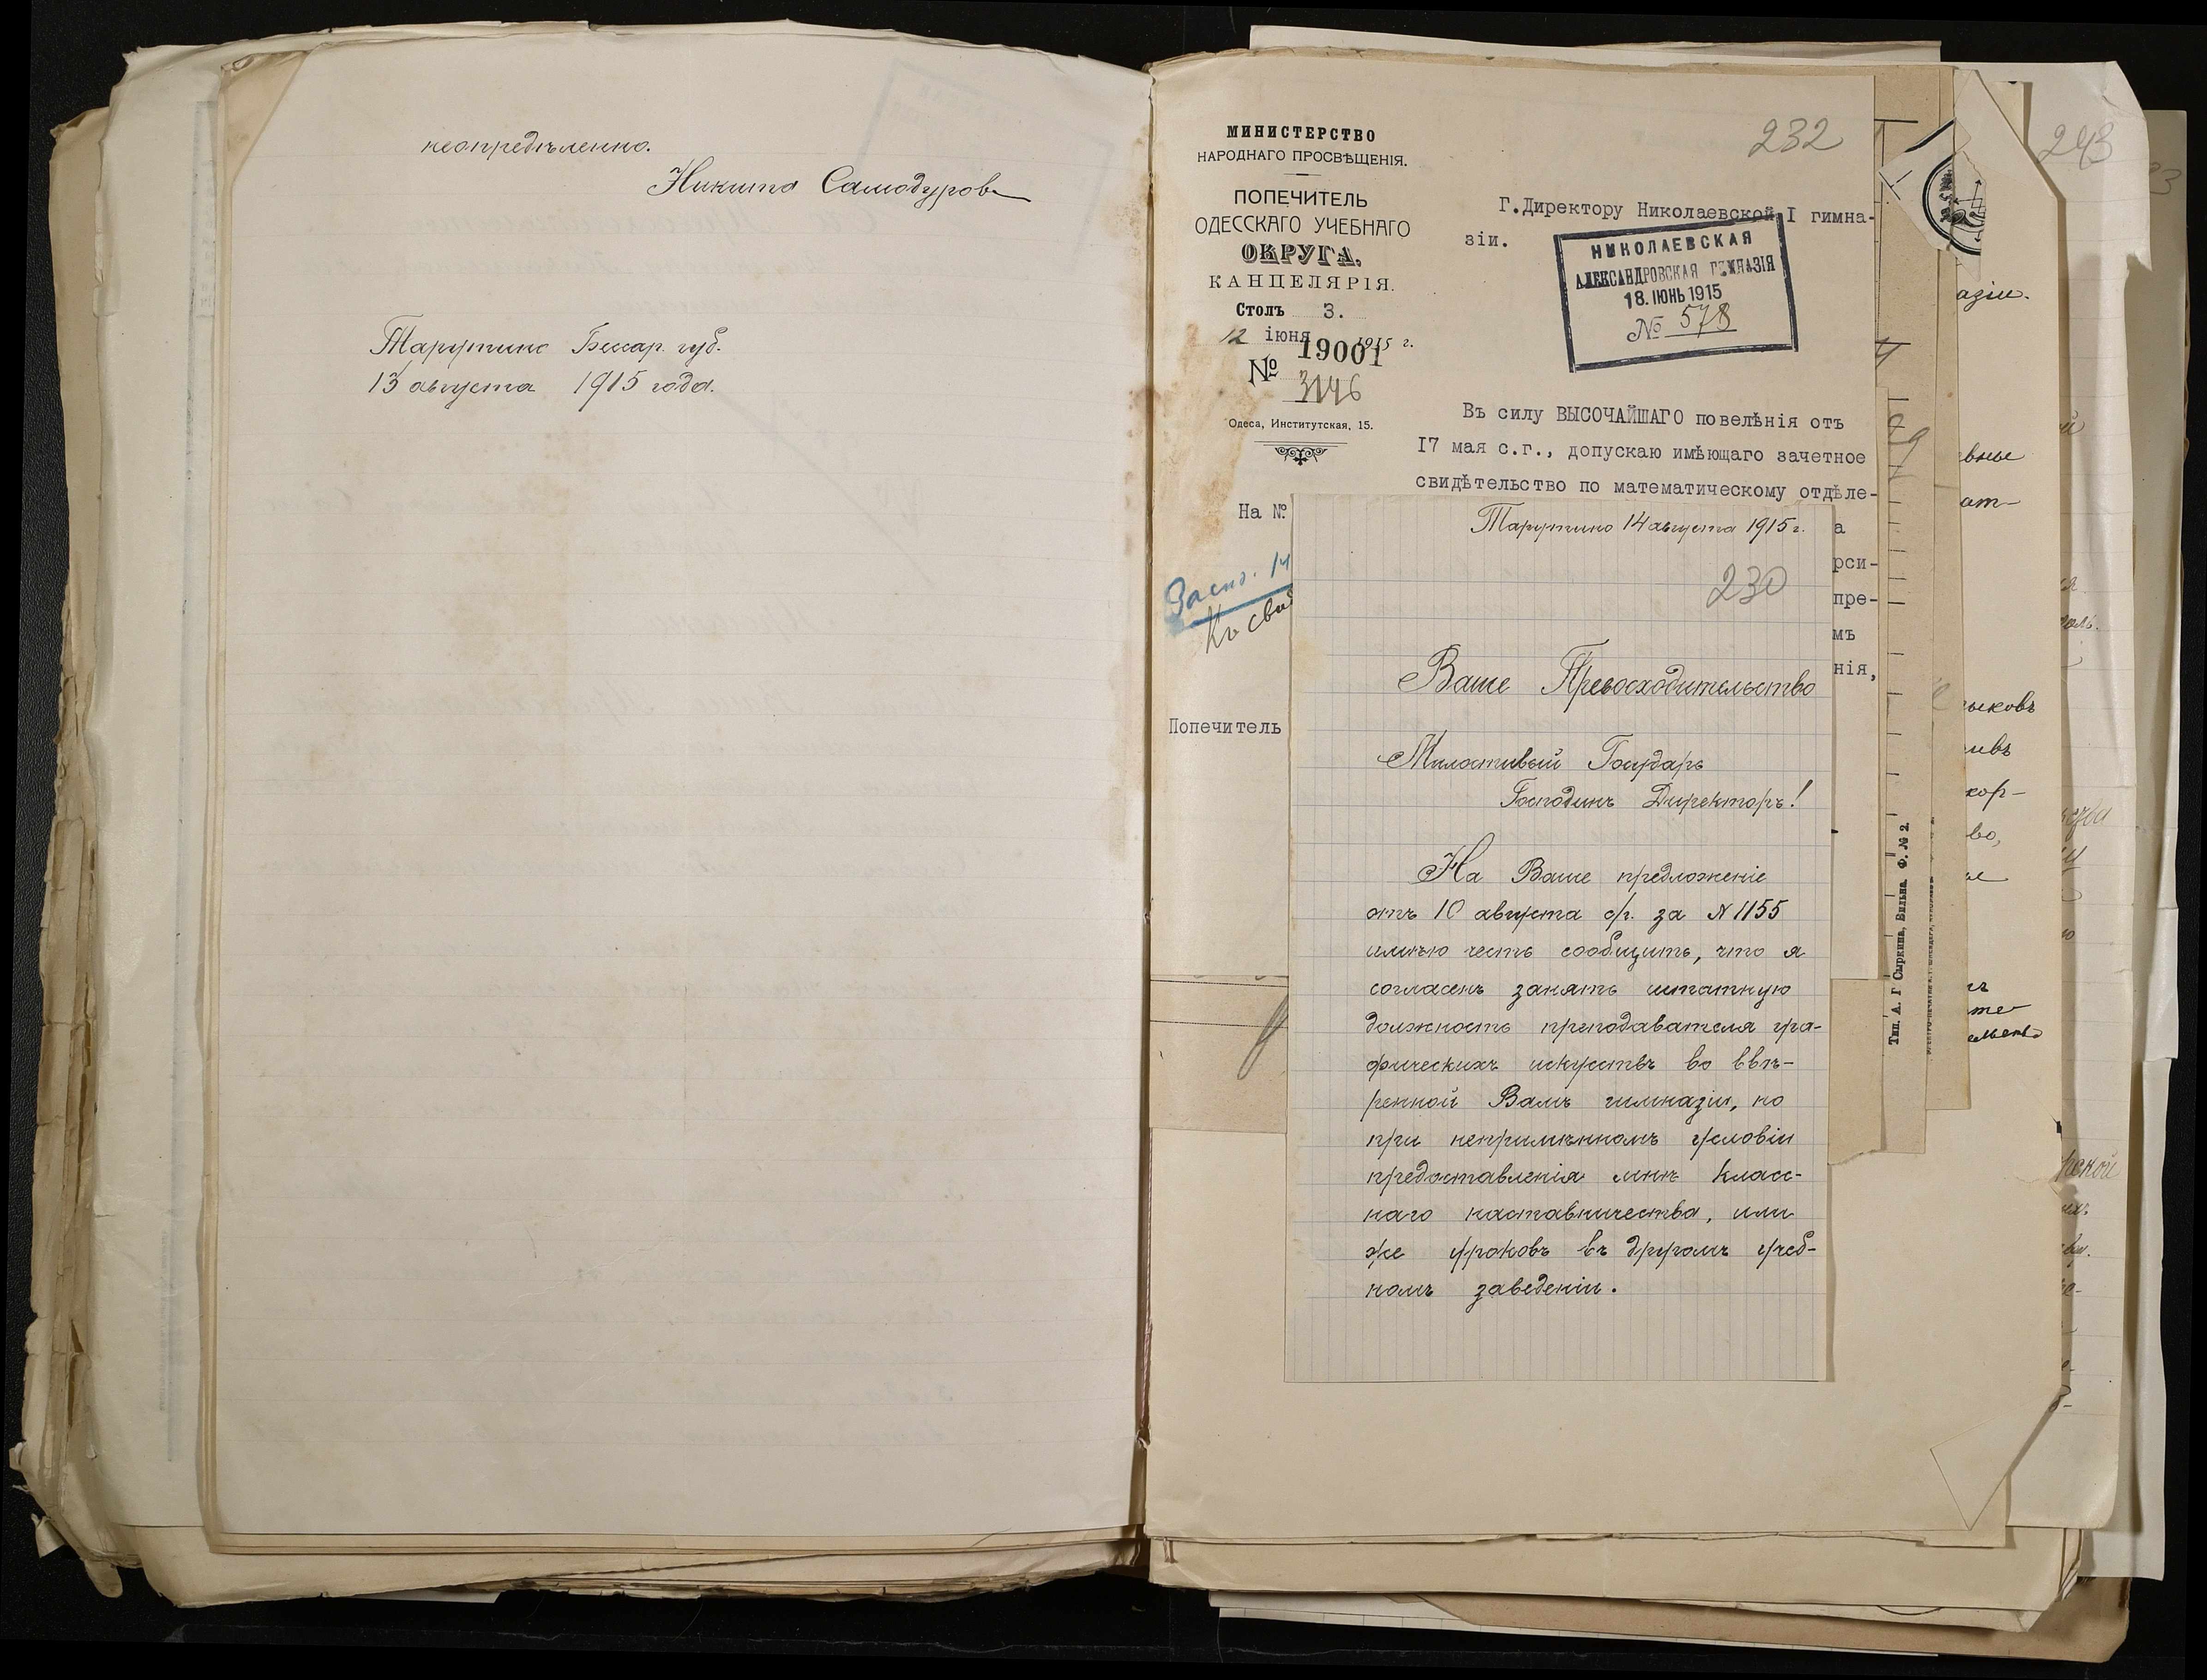 неопредѣленно.
Никита Самодуровъ
Тарутино Бессар. губ.
13 августа 1915 года.
МИНИСТЕРСТВО
НАРОДНАГО ПРОСВѢЩЕНІЯ.
ПОПЕЧИТЕЛЬ
ОДЕССКАГО УЧЕБНАГО
ОКРУГА.
КАНЦЕЛЯРІЯ.
Столъ 3.
12 іюня 1915 г.
№ 19001
3146
Одеса, Институтская, 15.
На №
Попечитель
232
Г.Директору Николаевской I гимна-
зіи.
НИКОЛАЕВСКАЯ
АЛЕКСАНДРОВСКАЯ ГИМНАЗІЯ
18. ІЮНЬ 1915
№ 578
Въ силу ВЫСОЧАЙШАГО повелѣнія отъ
17 мая с.г., допускаю имѣющаго зачетное
свидѣтельство по математическому отдѣле-
а
рси-
пре-
мъ
нія,
Тарутино 14 августа 1915 г.
230
Ваше Превосходительство
Милостивый Государь
Господинъ Директоръ!
На Ваше предложеніе
отъ 10 августа с/г. за № 1155
имѣю честь сообщить, что я
согласенъ занять штатную
должность преподавателя гра-
фическихъ искусствъ во ввѣ-
ренной Вамъ гимназіи, но
при непримѣнномъ условіи
предоставленія мнѣ класс-
наго наставничества, или
же уроковъ въ другомъ учеб-
номъ заведеніи.
Тип. А. Г Сыркина, Вильна. Ф. № 2.
243
азіи.